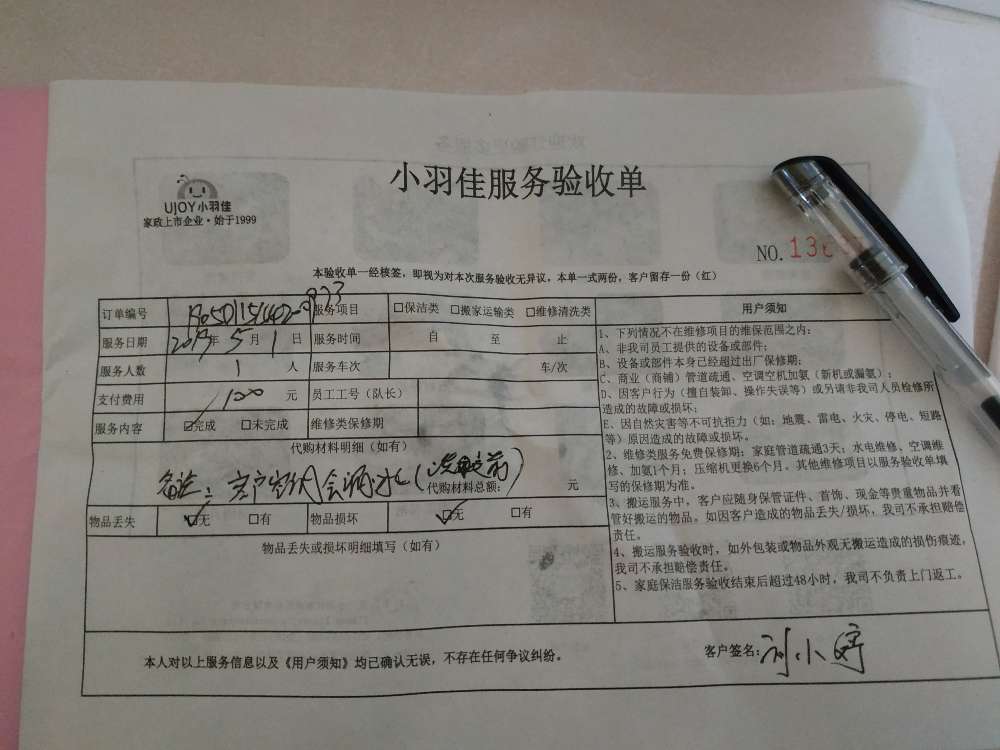 小羽佳服务验收单
UJOY小羽佳
家政上市企业·始于1999
NO. 13
本验收单一经核签，即视为对本次服务验收无异议，本单一式两份，客户留存一份（红）
订单编号 服务项目 □保洁类 □搬家运输类 □维修清洗类
服务日期 2019年 5月 1日 服务时间 自 至 止
服务人数 1 人 服务车次 车/次
支付费用 100 元 员工工号（队长）
服务内容 ☑完成 □未完成 维修类保修期
代购材料明细（如有）
备注：客户空调会漏水（洗之前）
代购材料总额: 元
物品丢失 ☑无 □有 物品损坏 ☑无 □有
物品丢失或损坏明细填写（如有）
用户须知
1、下列情况不在维修项目的维保范围之内：
A、非我司员工提供的设备或部件；
B、设备或部件本身已经超过出厂保修期；
C、商业（商铺）管道疏通、空调空机加氨（新机或漏氨）；
D、因客户行为（擅自装卸、操作失误等）或另请非我司人员检修所
造成的故障或损坏；
E、因自然灾害等不可抗拒力（如：地震、雷电、火灾、停电、短路
等）原因造成的故障或损坏。
2、维修类服务免费保修期：家庭管道疏通3天；水电维修、空调维
修、加氨1个月；压缩机更换6个月。其他维修项目以服务验收单填
写的保修期为准。
3、搬运服务中，客户应随身保管证件、首饰、现金等贵重物品并看
管好搬运的物品。如因客户造成的物品丢失/损坏，我司不承担赔偿
责任。
4、搬运服务验收时，如外包装或物品外观无搬运造成的损伤痕迹，
我司不承担赔偿责任。
5、家庭保洁服务验收结束后超过48小时，我司不负责上门返工。
本人对以上服务信息以及《用户须知》均已确认无误，不存在任何争议纠纷。
客户签名：刘小婷